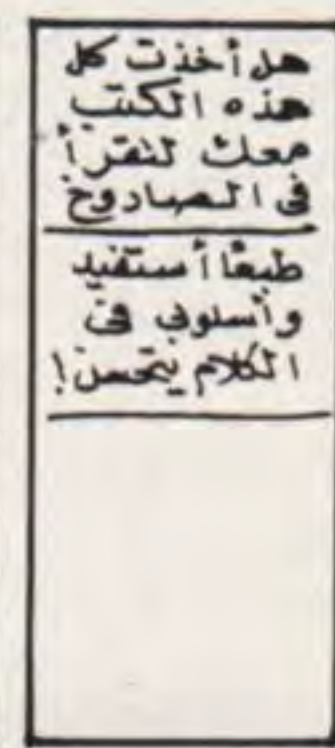 هل أخذت كل
هذه الكتب
معك لتقرأ
في الصاروخ
طبعًا أستفيد
وأسلوبي في
الكلام يتحسن!